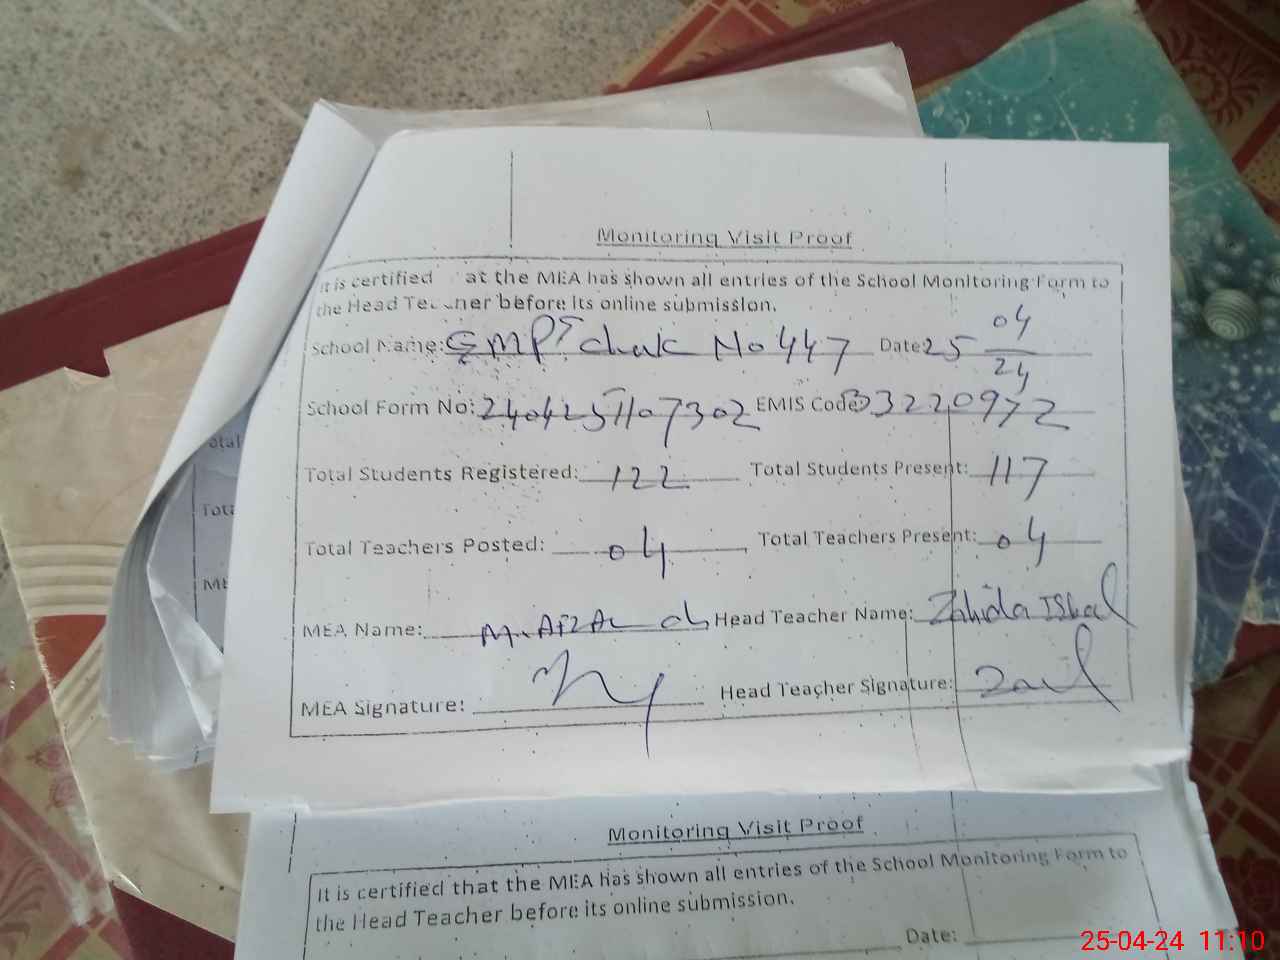 Monitoring Visit Proof
It is certified at the MEA has shown all entries of the School Monitoring Form to
the Head Teacher before its online submission.
School Name: GMPS chak No 447 Date: 25 04/24
School Form No: 2404251107302 EMIS Code: 33220972
Total Students Registered: 122 Total Students Present: 117
Total Teachers Posted: 04 Total Teachers Present: 04
MEA Name: M. AFZAL Head Teacher Name: Zahida
MEA Signature: Head Teacher Signature:
Total
Tota
ME
Monitoring Visit Proof
It is certified that the MEA has shown all entries of the School Monitoring Form to
the Head Teacher before its online submission.
Date:
25-04-24 11:10